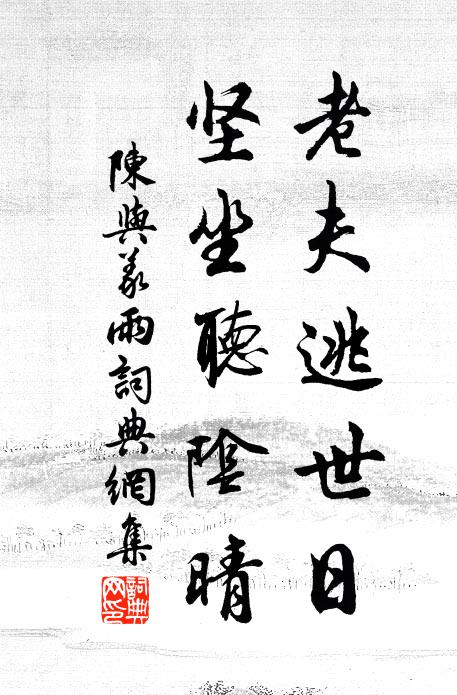 老夫逃世日
坚坐聽陰晴
陳與義雨詞典網集
詞典
网印